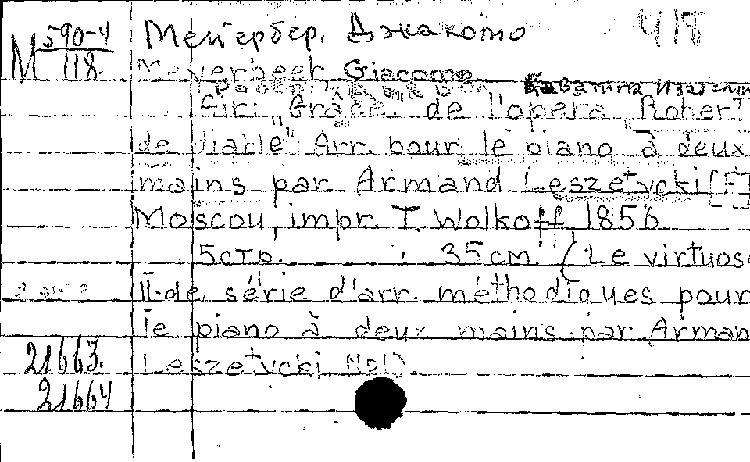 М 590-4 Мейербер. Джакомо
118 Meyerbeer Giacomo
Air: "Grâce" de l'opera Robert
de diable" Arr. pour le piano à deux
mains par Armand Leszetycki [F]
Moscou, impr. T. Wolkoff 1856
5стр. 35cm (Le virtuos
II-de série d'arr. méthodiques pour
le piano à deux mains par Arman
21663. Leszetycki №1)
21664